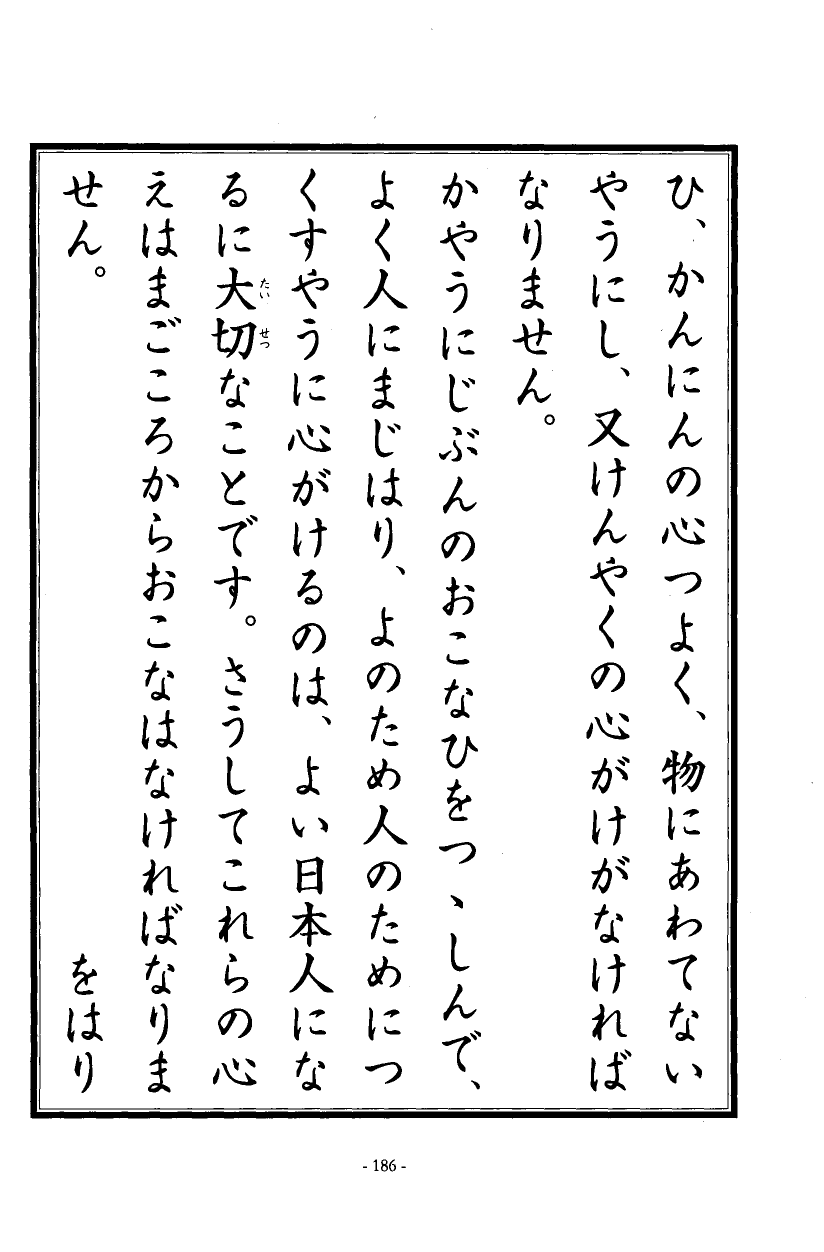 ひ、かんにんの心つよく、物にあわてない
やうにし、又けんやくの心がけがなければ
なりません。
かやうにじぶんのおこなひをつゝしんで、
よく人にまじはり、よのため人のためにつ
くすやうに心がけるのは、よい日本人にな
るに大切なことです。さうしてこれらの心
たいせつ
えはまごころからおこなはなければなりま
せん。
をはり
- 186 -